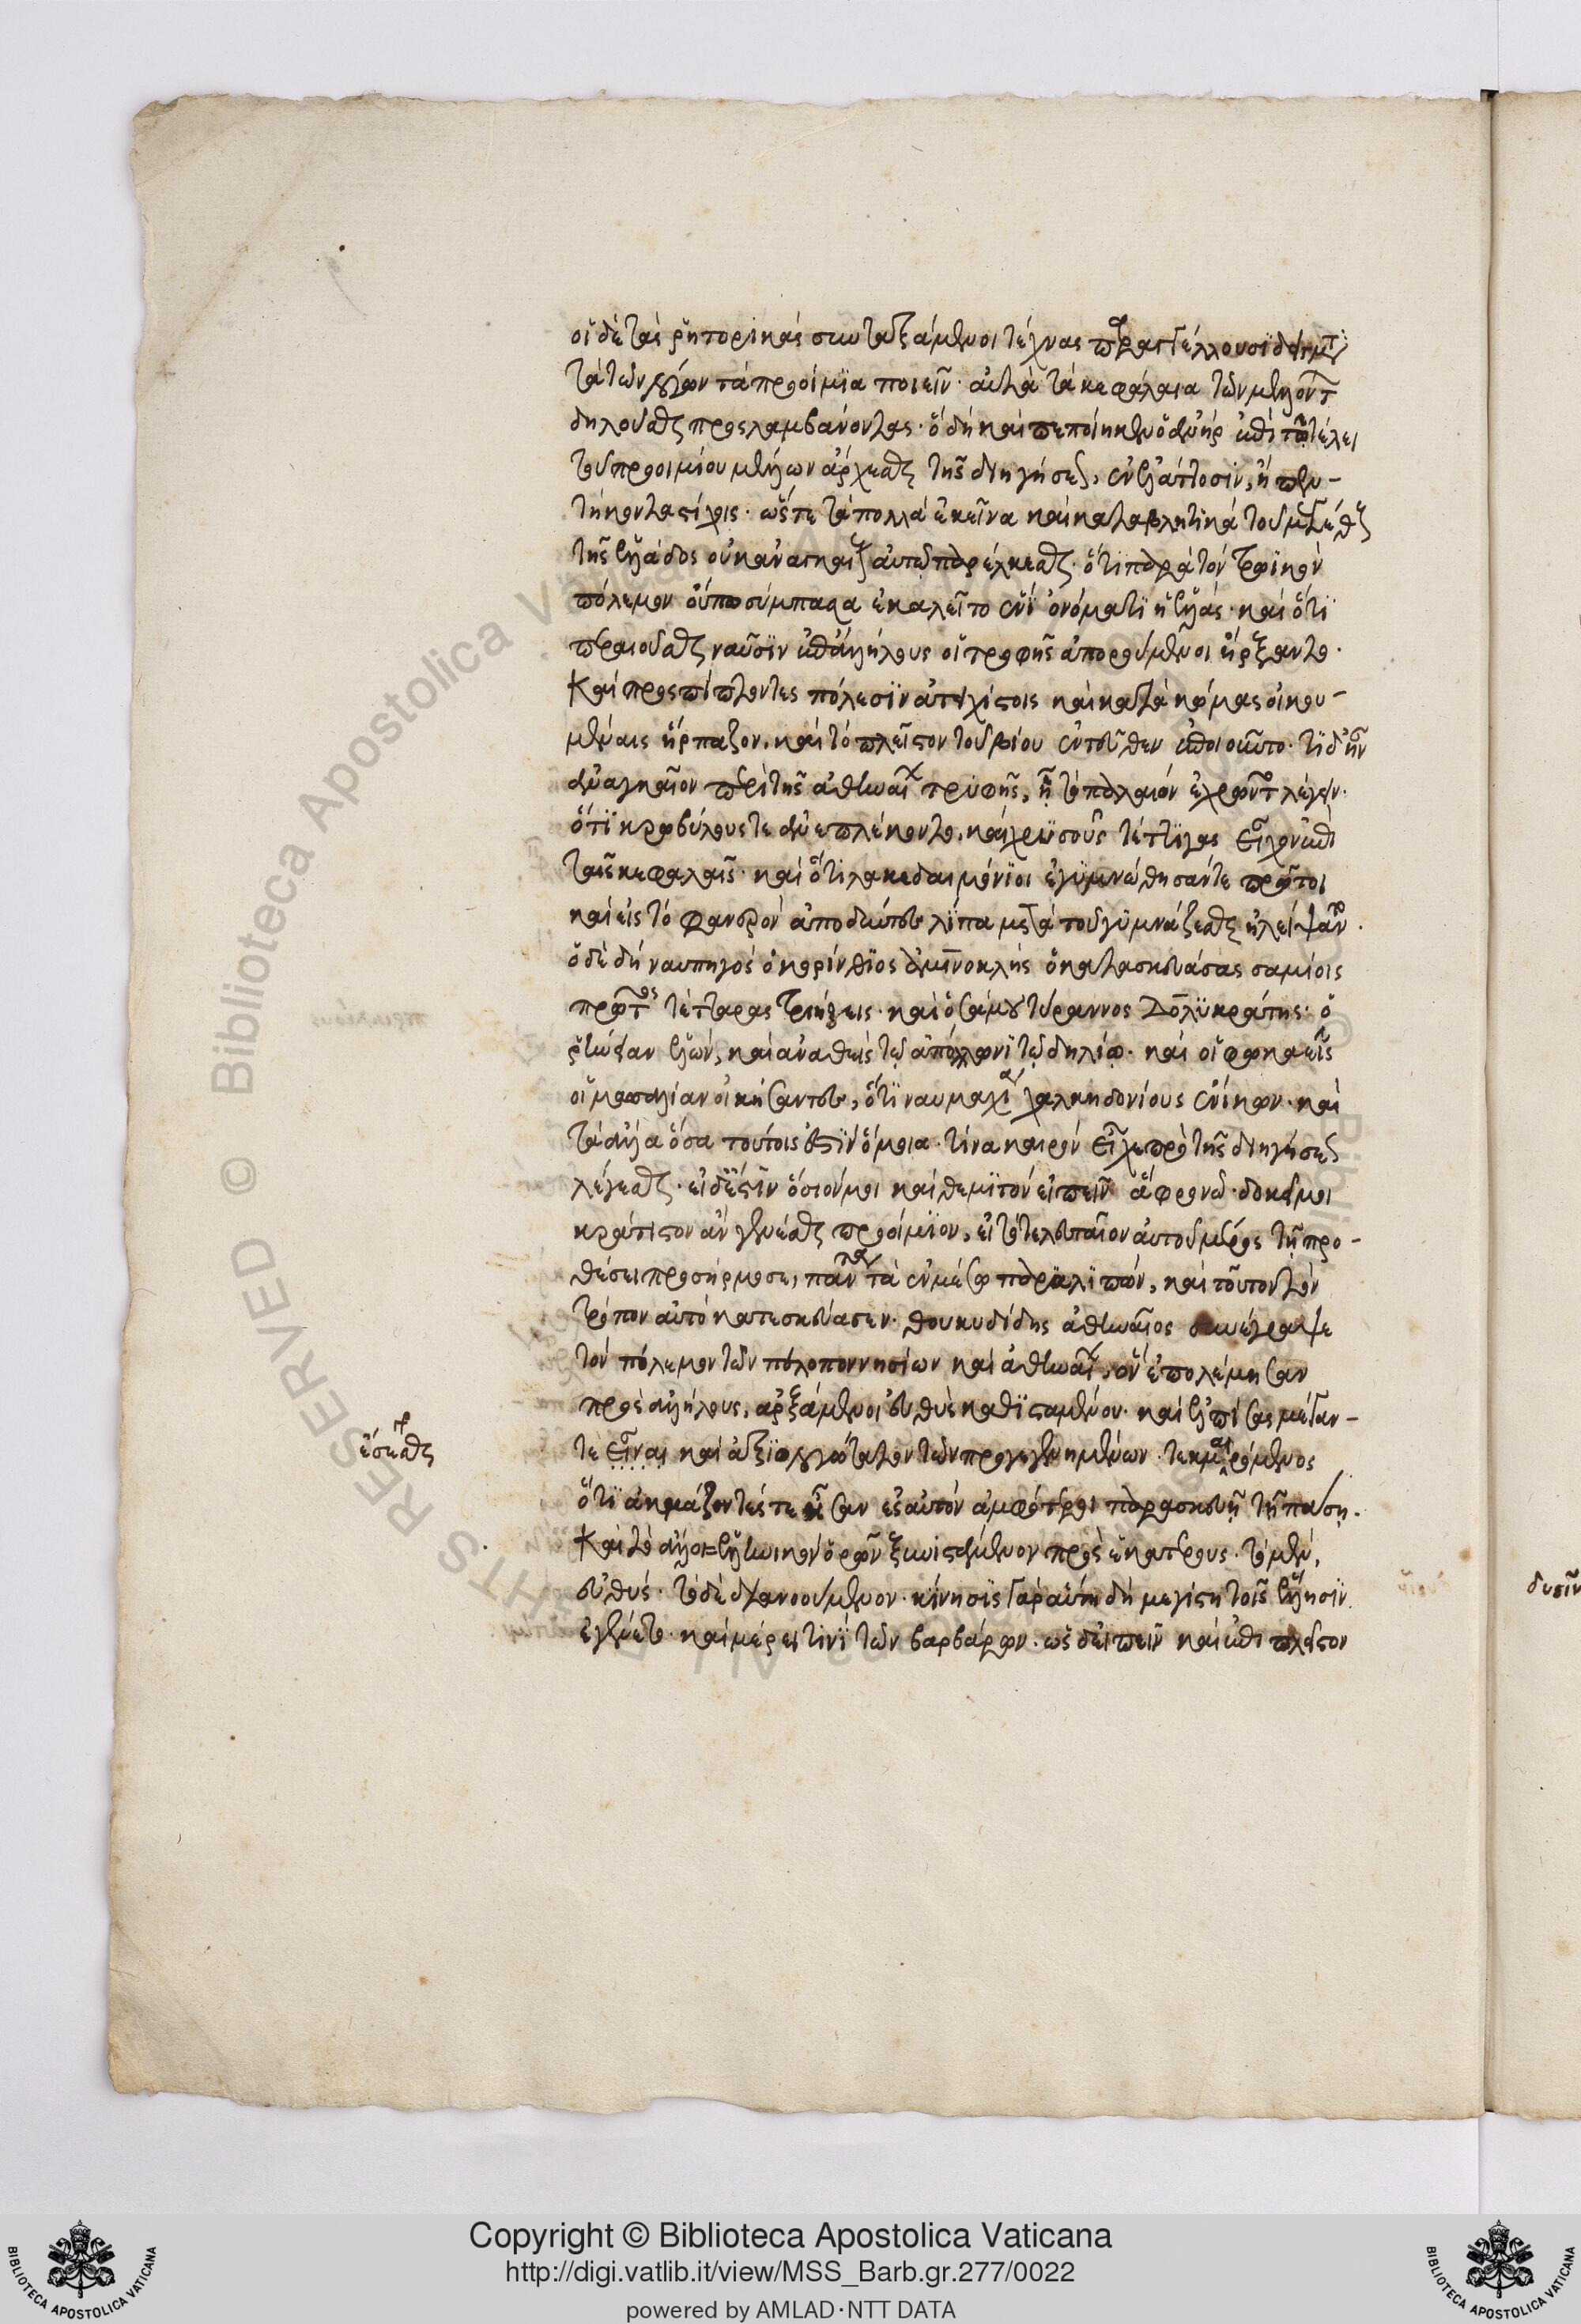 οἱ δὲ τὰς ῥητορικὰς συνταξάμενοι τέχνας παραγγέλλουσι δείγματα
τὰ τῶν λόγων τὰ προοίμια ποιεῖν· αὐτὰ τὰ κεφάλαια τῶν μελλόντων
δηλοῦσθαι προσλαμβάνοντας· ὃ δὴ καὶ πεποίηκεν ὁ ἀνὴρ ἐπὶ τῷ τέλει
τοῦ προοιμίου μέλλων ἄρχεσθαι τῆς διηγήσεως, ἐν ἐλάττοσιν, ἢ πεν-
τήκοντα στίχοις· ὥστε τὰ πολλὰ ἐκεῖνα καὶ καταβλητικὰ τοῦ μεγέθους
τῆς ἑλλάδος οὐκ ἀναγκαῖα αὐτῷ παρέλκεσθαι· ὅτι παρὰ τὸν τρωικὸν
πόλεμον οὔπω σύμπασα ἐκαλεῖτο ἑνὶ ὀνόματι ἡ ἑλλάς· καὶ ὅτι
περαιοῦσθαι ναῦσιν ἐπ' ἀλλήλους οἱ τροφῆς ἀπορούμενοι ἤρξαντο·
καὶ προσπίπτοντες πόλεσιν ἀτειχίστοις καὶ κατὰ κώμας οἰκου-
μέναις ἥρπαζον, καὶ τὸ πλεῖστον τοῦ βίου ἐντεῦθεν ἐποιοῦντο· τί δ' ἦν
ἀναγκαῖον περὶ τῆς ἀθηναίων τρυφῆς, ᾗ τὸ παλαιὸν ἐχρῶντο λέγειν·
ὅτι κρωβύλους τε ἀνεπλέκοντο, καὶ χρυσοῦς τέττιγας εἶχον ἐπὶ
ταῖς κεφαλαῖς· καὶ ὅτι λακεδαιμόνιοι ἐγυμνώθησάν τε πρῶτοι
καὶ εἰς τὸ φανερὸν ἀποδύντες λίπα μετὰ τοῦ γυμνάζεσθαι ἠλείψαντο·
ὁ δὲ δὴ ναυπηγὸς ὁ κορίνθιος ἀμινοκλῆς ὁ κατασκευάσας σαμίοις
πρῶτος τέτταρας τριήρεις· καὶ ὁ σάμου τύραννος Πολυκράτης· ὁ
ῥήνειαν ἑλών, καὶ ἀναθεὶς τῷ ἀπόλλωνι τῷ δηλίῳ· καὶ οἱ φωκαεῖς
οἱ μασσαλίαν οἰκήσαντες, ὅτι ναυμαχίᾳ χαλκηδονίους ἐνίκων· καὶ
τὰ ἄλλα ὅσα τούτοις ἐστὶν ὅμοια· τίνα καιρὸν εἶχε πρὸ τῆς διηγήσεως
λέγεσθαι· εἰ δέ ἐστιν ὅσιόν μοι καὶ θεμιτὸν εἰπεῖν ἃ φρονῶ· δοκεῖ μοι
κράτιστον ἂν γενέσθαι προοίμιον, εἰ τὸ τελευταῖον αὐτοῦ μέρος τῇ προ-
θέσει προσήρμοσε, πάντα τὰ ἐν μέσῳ παραλιπών, καὶ τοῦτον τὸν
τρόπον αὐτὸ κατεσκεύασεν· θουκυδίδης ἀθηναῖος συνέγραψε
τὸν πόλεμον τῶν πελοποννησίων καὶ ἀθηναίων, ὃν ἐπολέμησαν
πρὸς ἀλλήλους, ἀρξάμενοι εὐθὺς καθισταμένου· καὶ ἐλπίσας μέγαν
τε εἶναι καὶ ἀξιολογώτατον τῶν προγεγενημένων· τεκμαιρόμενος
ἔσεσθαι
ὅτι ἀκμάζοντές τε ἦσαν ἐς αὐτὸν ἀμφότεροι παρασκευῇ τῇ πάσῃ.
καὶ τὸ ἄλλο ἑλληνικὸν ὁρῶν ξυνιστάμενον πρὸς ἑκατέρους· τὸ μὲν,
εὐθύς· τὸ δὲ διανοούμενον· κίνησις γὰρ αὕτη δὴ μεγίστη τοῖς ἕλλησιν
ἐγένετο· καὶ μέρει τινὶ τῶν βαρβάρων· ὡς δ' εἰπεῖν καὶ ἐπὶ πλεῖστον
Copyright © Biblioteca Apostolica Vaticana
http://digi.vatlib.it/view/MSS_Barb.gr.277/0022
powered by AMLAD·NTT DATA